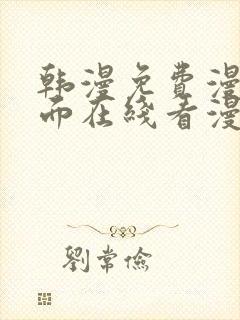 韩漫免费漫
而在线看漫
刘常俭